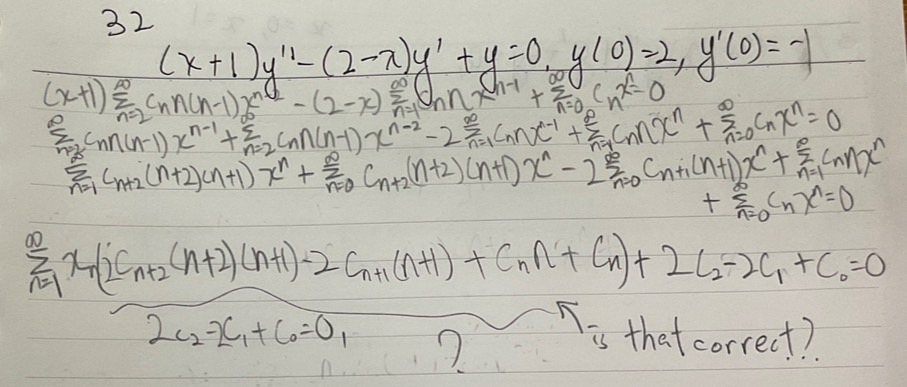 32
(x+1)y''-(2-x)y'+y=0, y(0)=2, y'(0)=-1
(x+1) ∞Σn=2 Cn n(n-1)x^n-2 - (2-x) ∞Σn=1 Cn n x^n-1 + ∞Σn=0 Cn x^n=0
∞Σn=2 Cn n(n-1)x^n-1 + ∞Σn=2 Cn n(n-1)x^n-2 - 2 ∞Σn=1 Cn n x^-1 + ∞Σn=1 Cn n x^n + ∞Σn=0 Cn x^n=0
∞Σn=1 Cn+2(n+2)(n+1)x^n + ∞Σn=0 Cn+2(n+2)(n+1)x^n - 2 ∞Σn=0 Cn+1(n+1)x^n + ∞Σn=1 Cn n x^n
+ ∞Σn=0 Cn x^n=0
∞Σn=1 xn(2Cn+2(n+2)(n+1)-2Cn+1(n+1)+Cn n+Cn)+2C2-2C1+C0=0
2C2-2C1+C0=0,
? is that correct?